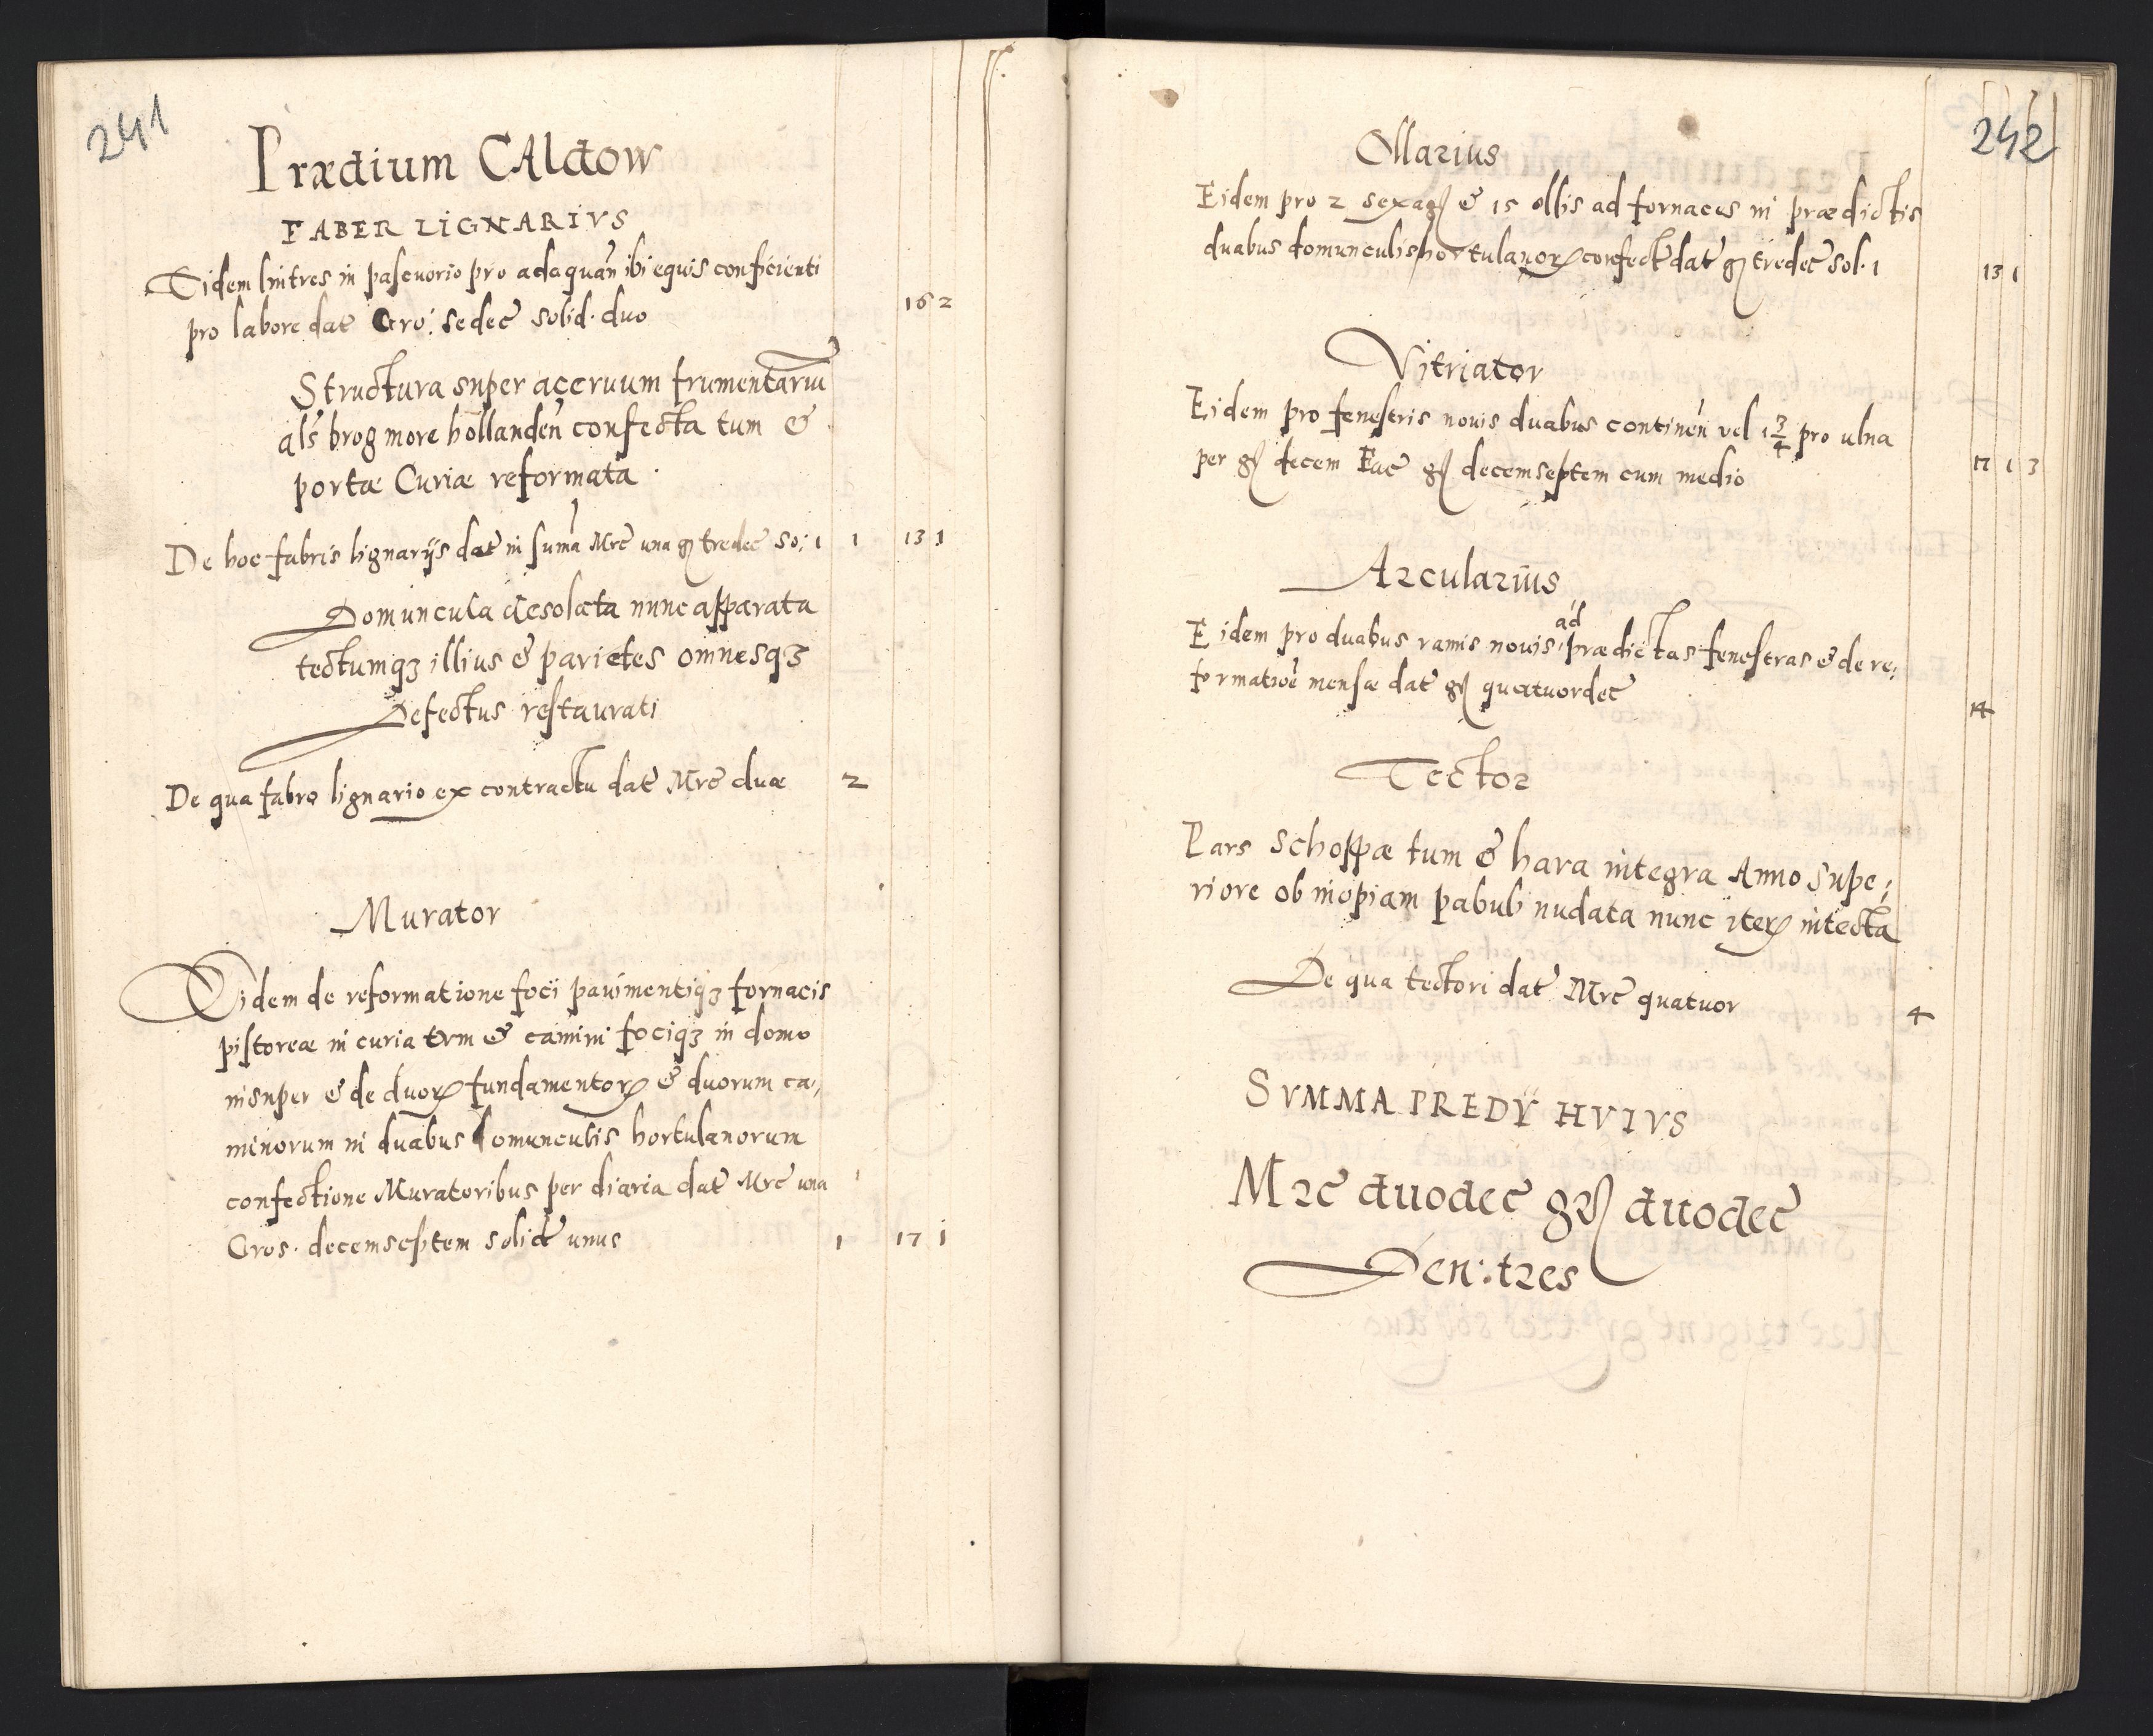 241
Prædium CAldow
FABER LIGNARIVS
Eidem lintres in pascuorio pro adaquan̄ ibi equis conficienti
pro labore dat̄ Gro: sedec̄ solid. duo 16 2
Structura super aceruum frumentariū
als̄ brog more hollanden̄ confecta tum &
portæ Curiæ reformata.
De hoc fabris lignarijs dat̄ in sum̄a Mrc̄ una gr̄ tredec̄ so: 1 1 13 1
Domuncula desolata nunc apparata
tectumqꝫ illius & parietes omnesqꝫ
Defectus restaurati
De qua fabro lignario ex contractu dat̄ Mrc̄ duæ 2
Murator
Eidem de reformatione foci pauimentiqꝫ fornacis
pistoreæ in curia tum & camini fociqꝫ in domo
insuper & de duorꝝ fundamentorꝝ & duorum ca,,
minorum in duabus domunculis hortulanorum
confectione Muratoribus per diaria dat̄ Mrc̄ una
Gros. decemseptem solid̄ unus 1 17 1
242
Ollarius
Eidem pro 2 sexagꝭ & 15 ollis ad fornaces in prædictis
duabus domunculis hortulanorꝝ confect̄ dat̄ gꝭ tredec̄ sol. 1 13 1
Vitriator
Eidem pro fenestris nouis duabus continen̄ vel 1 3/4 pro ulna
per gꝭ decem Fac̄ gꝭ decemseptem cum medio 17 1 3
Arcularius
ad
Eidem pro duabus ramis nouis prædictas fenestras & de re,,
formatioē mensæ dat̄ gꝭ quatuordec̄ 14
Tector
Pars Schoppæ tum & hara integra Anno Supe,,
riore ob inopiam pabuli nudata nunc iterꝝ intecta
De qua tectori dat̄ Mrc̄ quatuor 4
SVMMA PREDIJ HVIVS
Mrc̄ duodec̄ grꝭ duodec̄
Den: tres